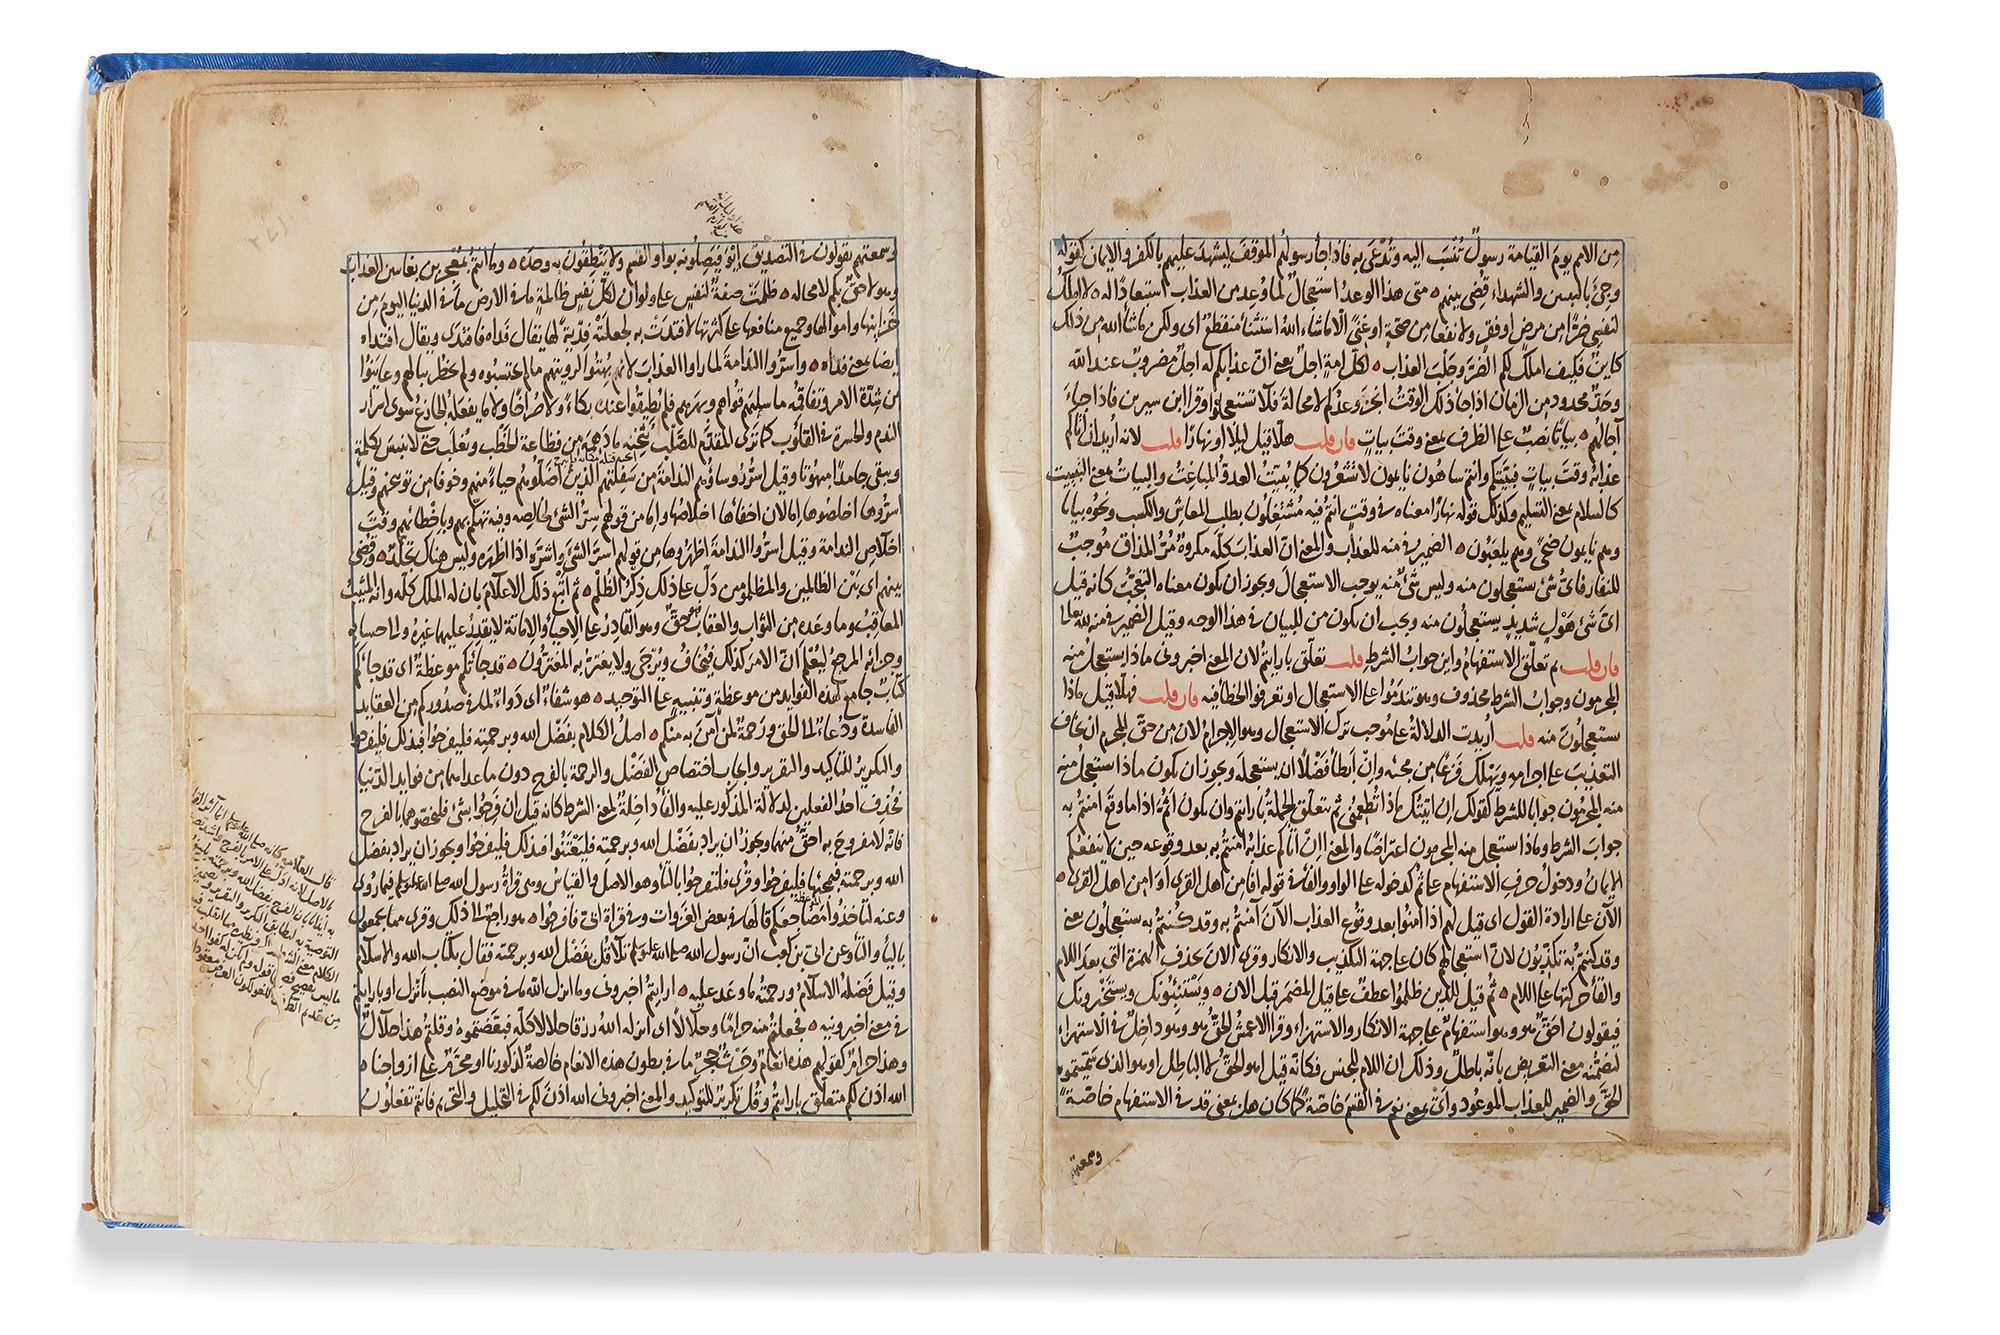 من الامم يوم القيامة رسولٌ تُنْسَب اليه وتُدْعَى به فاذا جاء رسولهم الموقفَ ليشهد عليهم بالكفر والايمان كقوله
وجئ بالنبيين والشهداء قُضِى بينهم متى هذا الوعد استعجالٌ لما وُعِدوا من العذاب استبعادًا له لا املك
لنفسي ضرًا من مرض او فقر ولا نفعا من صحة او غنًى الا ما شاء الله استثناء منقطع اى ولكن ما شاء الله من ذلك
كاين فكيف املك لكم الضرر وجلب العذاب لكل امةٍ اجلٌ يعنى انّ عذابكم له اجل مضروب عند الله
وحدّ محدود من الزمان اذا جاء ذلك الوقت انجز وعدكم لا محالة فلا تستعجلوا وقرا ابن سيرين فاذا جاء
آجالهم بياتا نصب على الظرف بمعنى وقت بيات فان قلت هلا قيل ليلا او نهارًا قلت لانه أريد ان أتاكم
عذابه وقت بيات فبيّتكم وانتم ساهون نايمون لا تشعرون كما يبيّت العدوّ المباغت والبيات بمعنى التبييت
كالسلام بمعنى التسليم وكذلك قوله نهارًا معناه في وقت انتم فيه مشتغلون بطلب المعاش والكسب ونحوه بياتا
وهم نايمون ضحًى وهم يلعبون الضمير في منه للعذاب والمعنى انّ العذاب كلّه مكروهٌ مُرّ المذاق مُوجبٌ
للنفار فاىّ شئ يستعجلون منه وليس شئٌ منه يوجب الاستعجال ويجوز ان يكون معناه التعجّب كانه قيل
اىّ شئ هَوْلٍ شديدٍ يستعجلون منه ويجب ان يكون من للبيان في هذا الوجه وقيل الضمير في منه لله تعالى
فان قلت بم تعلّق الاستفهام واين جواب الشرط قلت تعلّق بارايتم لان المعنى اخبروني ماذا يستعجل منه
المجرمون وجواب الشرط محذوف وهو تندموا على الاستعجال او تعرفوا الخطأ فيه فان قلت فهلّا قيل ماذا
ستعجلون منه قلت أريدت الدلالة على موجب ترك الاستعجال وهو الاجرام لان من حقّ المجرم ان يخاف
التعذيب على اجرامه ويهلك فزعًا من مجيئه وانْ ابطأ فضلًا ان يستعجله ويجوز ان يكون ماذا استعجل منه
منه المجرمون جوابا للشرط كقولك ان اتيتك ماذا تُطعمنى ثم يتعلّق الجملة بارايتم وان يكون أثم اذا ما وقع امنتم به
جواب الشرط وماذا استعجل منه المجرمون اعتراضًا والمعنى انْ أتاكم عذابه امنتم به بعد وقوعه حين لا ينفعكم
الايمان ودخول حرف الاستفهام على ثمّ كدخوله على الواو والفاء في قوله أفأمن اهل القرى أوَأمن اهل القرى
الآن على ارادة القول اى قيل لهم اذا امنوا بعد وقوع العذاب الآن آمنتم به وقد كنتم به ستعجلون يعنى
وقد كنتم به تكذّبون لانّ استعجالهم كان على جهة التكذيب والانكار وقرى الان بحذف الهمزة التى بعد اللام
والقاء حركتها على اللام ثم قيل للذين ظلموا عطفٌ على قيل المضمر قبل الان ويَسْتنبئونك ويستخبرونك
فيقولون احقّ هو وهو استفهام على جهة الانكار والاستهزاء وقرا الاعمش الحقّ هو وهو داخل في الاستهزاء
لتضمّنه معنى التعريض بانّه باطلٌ وذلك ان اللام للجنس فكانّه قيل اهو الحقّ لا الباطل او هو الذى سمّيتموه
الحقّ والضمير للعذاب الموعود واىْ بمعنى نعم في القسم خاصّةً كما كان هل بمعنى قد في الاستفهام خاصّةً
وسمعتهم
وسمعتهم يقولون في التصديق إيْوَ فيصلونه بواو القسم ولا ينطقون به وحده وما انتم بمعجزين بفائتين العذاب
وهو لاحقٌ بكم لا محاله ظلمت صفة لنفس على ولو ان لكل نفس ظالمةٍ ما في الارض ما في الدنيا اليوم من
خزاينها واموالها وجميع منافعها على كثرتها لافتدت به لجعلته فديةً لها يقال فداه فافتدى ويقال افتداه
ايضا بمعنى فداه واسرّوا الندامة لما راوا العذاب لانهم بهتوا لرويتهم ما لم يحتسبوه ولم يخطر ببالهم وعاينوا
من شدّة الامر وتفاقمه ما سلبهم قواهم وبهرهم فلم يطيقوا عنده بكاءً ولا صراخًا ولا ما يفعله الجازع سوى اسرار
الندم والحسرة في القلوب كما ترى المقدّم للصَلْب يثخنه ما دهمه من فظاعة الخطْب ويغلب حتى لا ينبس بكلمة
ويبقى جامدًا مبهوتًا وقيل اسَرّ رؤساؤهم الندامةَ من سفلتهم الذين اضلّوهم حياءً منهم وخوفا من توبيخهم وقيل
اسرّوها اخلصوها إمّا لان اخفاءها اخلاصُها وإمّا من قولهم سرّ الشئ لخالصه وفيه تهكّم بهم وباخطائهم وقتَ
اخلاصِ الندامة وقيل اسرّوا الندامة اظهروها من قولهم اسرّ الشئ واشرّه اذا اظهره وليس هناك تجلّد وقضى
بينهم اى بين الظالمين والمظلومين دلّ على ذلك ذكر الظُلْم ثم أتبع ذلك الاعلام بان له الملك كلّه وانه المثيب
المعاقب وما وعده من الثواب والعقاب فهو حقّ وهو القادر على الاحياء والاماتة لا يقدر عليهما غيره والى حسابه
وجزائه المرجع ليُعلم انّ الامر كذلك فيُخاف ويُرجى ولا يغترّ به المغترّون قد جاءتكم موعظةٌ اى قد جاءكم
كتابٌ جامع لهذه الفوايد من موعظةٍ وتنبيهٍ على التوحيد هو شفاءٌ اى دواءٌ لما في صدوركم من العقايد
الفاسدة ودُعاءٌ الى الحق ورَحمةٌ لمن آمن به منكم اصل الكلام بفضل الله وبرحمته فليفرحوا فبذلك فليفرحوا
والتكرير للتاكيد والتقرير وايجاب اختصاص الفضل والرحمة بالفرح دون ما عداهما من فوايد الدنيا
فحُذف احد الفعلين لدلالة المذكور عليه والفاء داخلةٌ لمعنى الشرط كانه قيل ان فرحوا بشئ فليخصّوهما بالفرح
فانّه لا مفروح به احقّ منهما ويجوز ان يراد بفضل الله وبرحمته فليعْتنُوا فبذلك فليفرحوا ويجوز ان يراد بفضل
الله وبرحمته فبمجيئها فليفرحوا وقرى فلتفرحوا بالتاء وهو الاصل والقياس وهى قراءة رسول الله صلى الله عليه وسلم فيما رُوى
وعنه لتاخذوا مضاجعكم قالها في بعض الغزوات وفي قراءة ابىّ فافرحوا هو راجع الى ذلك وقرى مما يجمعون
بالياء والتاء وعن ابىّ بن كعب ان رسول الله صلى الله عليه وسلم تلا قل بفضل الله وبرحمته فقال بكتاب الله والاسلام
وقيل فضله الاسلام ورحمته ما وعد عليه ارايتم اخبروني وما انزل الله ما في موضع النصب بانزل او بارايتم
في معنى اخبرونيه فجعلتم منه حرامًا وحلالًا اى انزله الله رزقا حلالا كلّه فبعّضتموه وقلتم هذا حلالٌ
وهذا حرامٌ كقولهم هذه انعام وحرث حجر ما في بطون هذه الانعام خالصةٌ لذكورنا ومحرّم على ازواجنا
الله اذن لكم متعلّق بارايتم وقُل تكريرٌ للتوكيد والمعنى اخبروني الله اذن لكم في التحليل والتحريم فانتم تفعلون